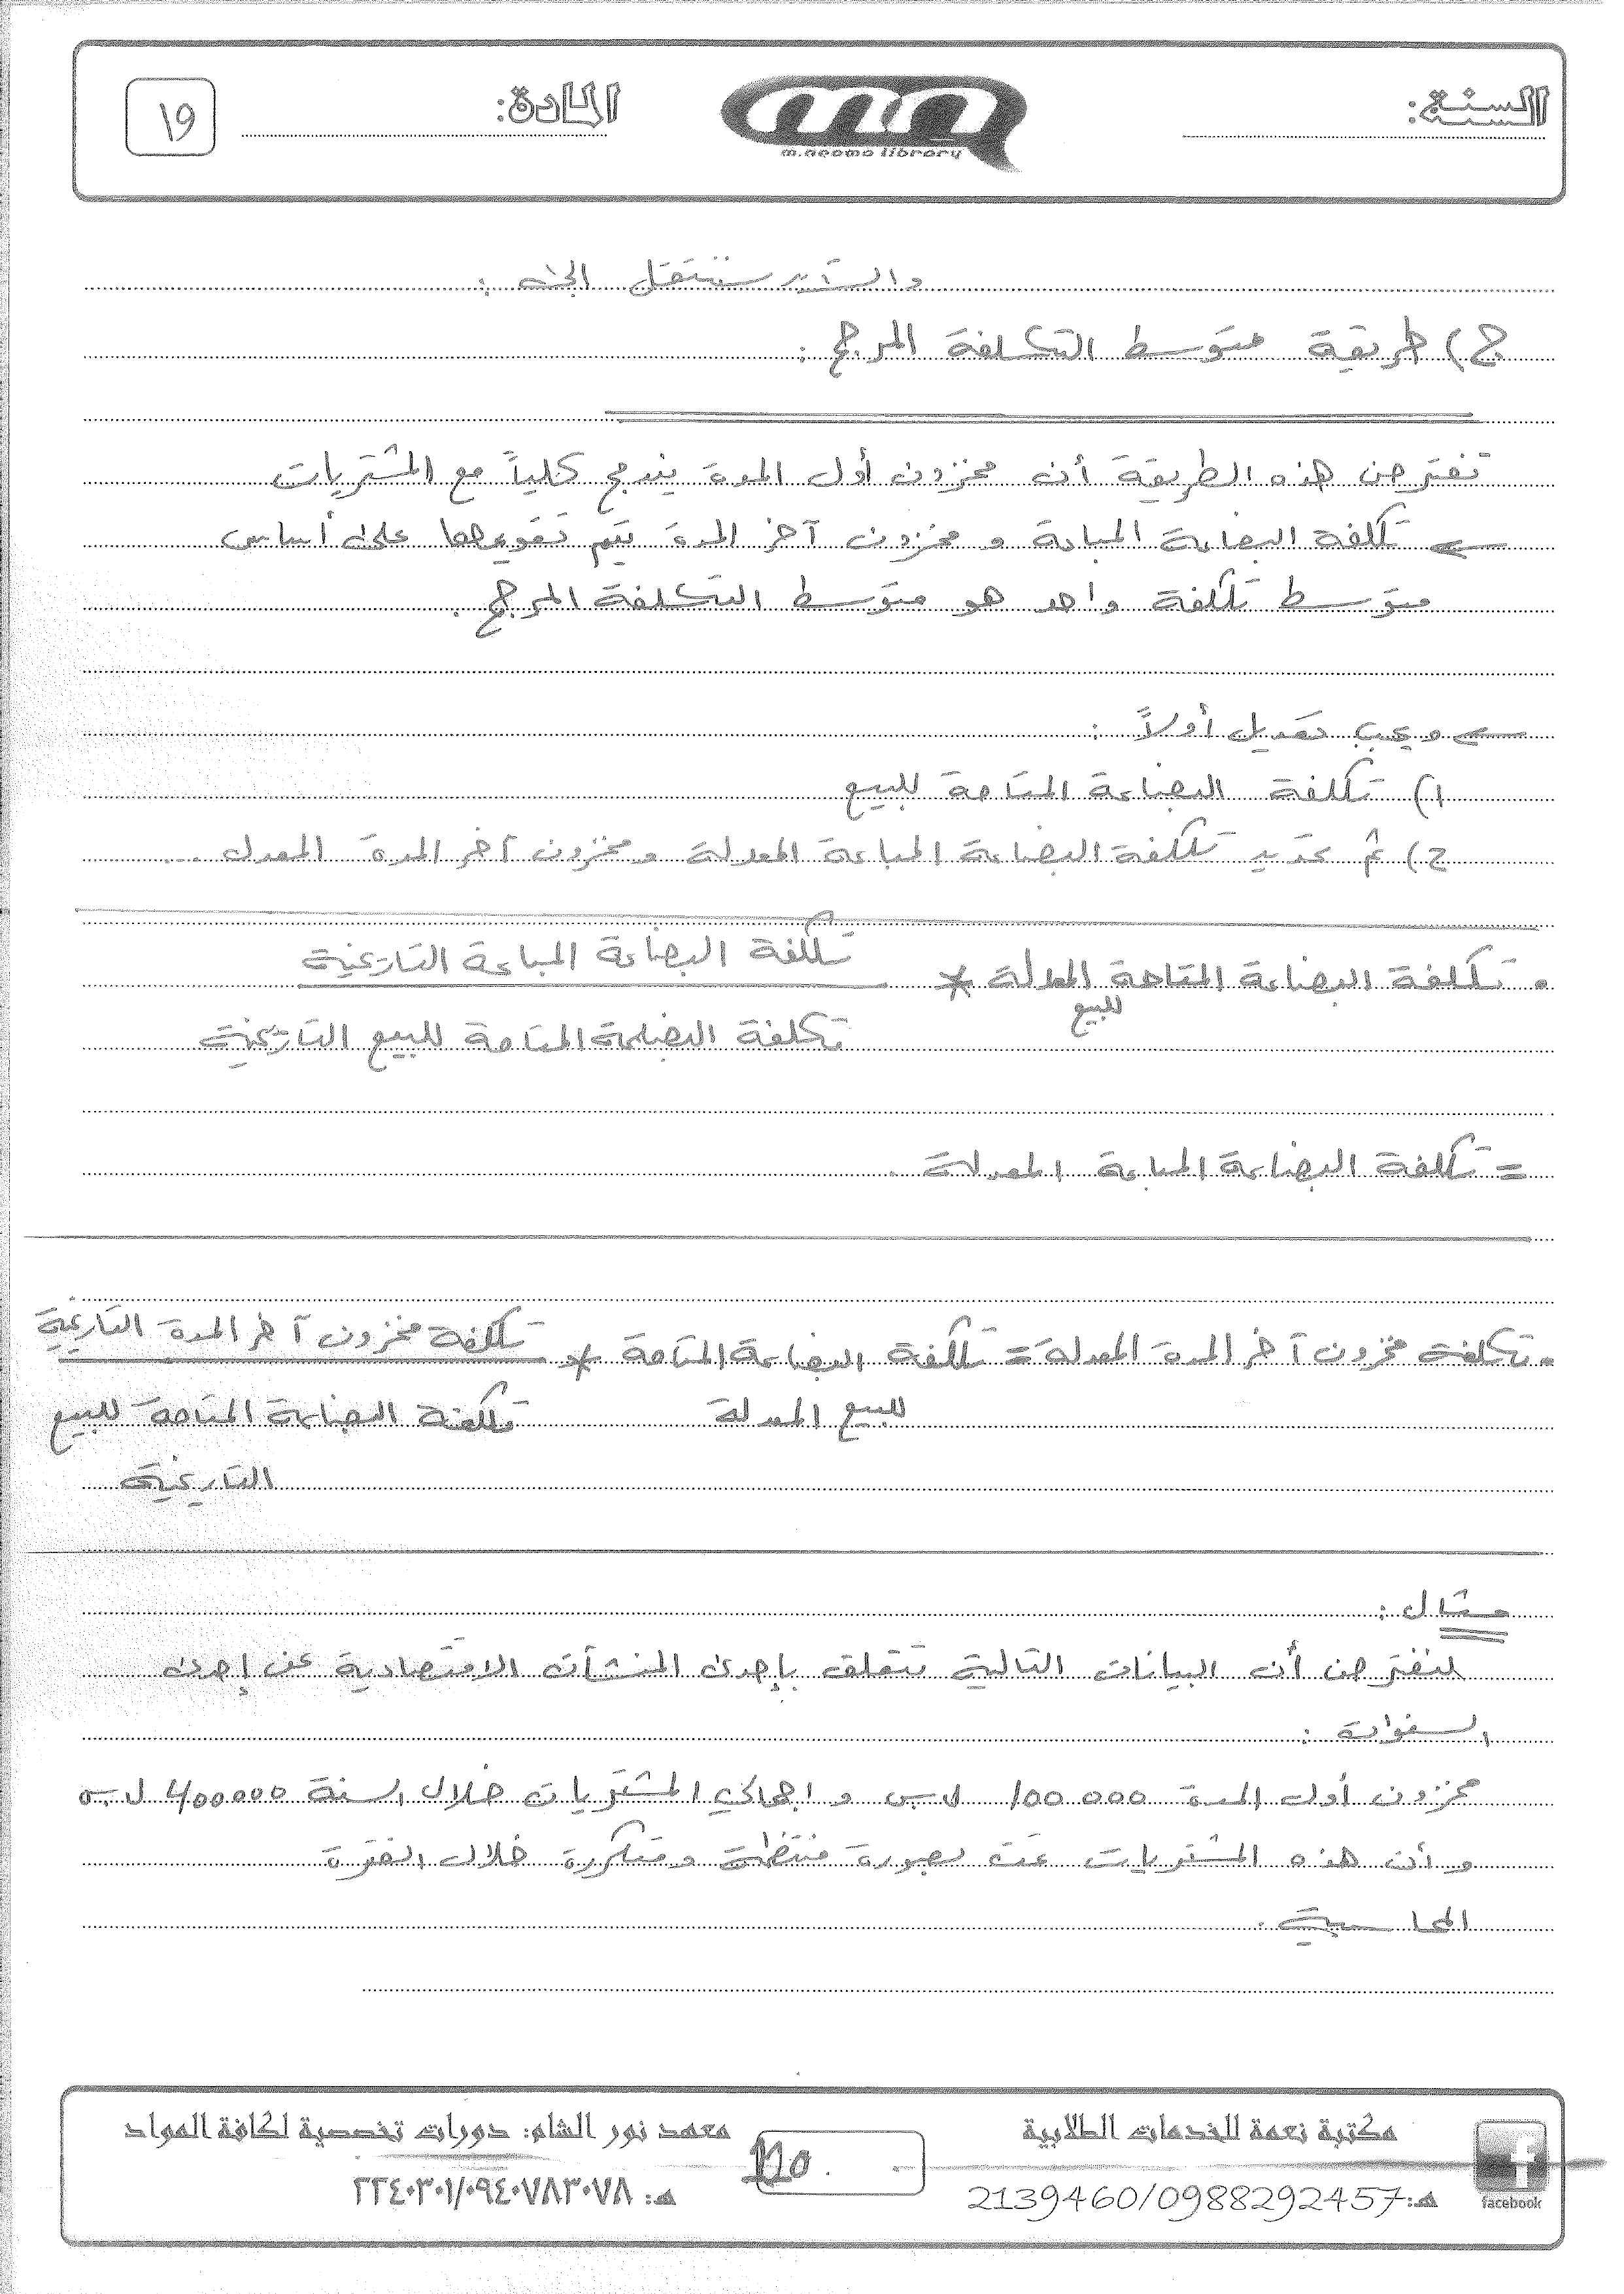 السنة:
m.neoma library
المادة:
١٩
والآن سننتقل إلى :
ج) طريقة متوسط التكلفة المرجح :
تفترض هذه الطريقة أن مخزون أول المدة يندمج كلياً مع المشتريات
تكلفة البضاعة المباعة و مخزون آخر المدة يتم تقويمها على أساس
متوسط تكلفة واحد هو متوسط التكلفة المرجح .
و يجب تعديل أولاً :
١) تكلفة البضاعة المتاحة للبيع
٢) ثم تحديد تكلفة البضاعة المباعة المعدلة ومخزون آخر المدة المعدل ...
• تكلفة البضاعة المتاحة المعدلة * تكلفة البضاعة المباعة التاريخية
للبيع
تكلفة البضاعة المتاحة للبيع التاريخية
= تكلفة البضاعة المباعة المعدلة .
• تكلفة مخزون آخر المدة المعدلة = تكلفة البضاعة المتاحة * تكلفة مخزون آخر المدة التاريخية
للبيع المعدلة تكلفة البضاعة المتاحة للبيع
التاريخية
مثال :
لنفترض أن البيانات التالية تتعلق بإحدى المنشآت الاقتصادية عن إحدى
السنوات :
مخزون أول المدة 100000 ل.س و اجمالي المشتريات خلال السنة 400000 ل.س
و أن هذه المشتريات تمت بصورة منتظمة و متكررة خلال الفترة
المحاسبية .
facebook
مكتبة نعمة للخدمات الطلابية
هـ: 2139460/0988292457
معهد نور الشام: دورات تخصصية لكافة المواد
هـ: ٢٢٤٠٣٠١/٠٩٤٠٧٨٣٠٧٨